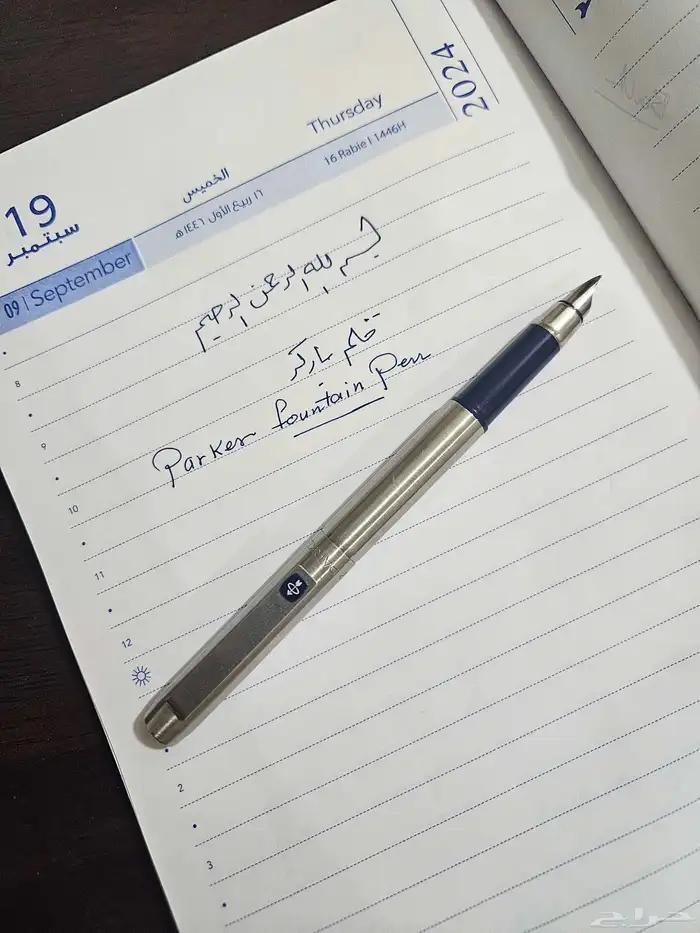 2024
Thursday
الخميس
19
سبتمبر
16 Rabie I 1446H
١٦ ربيع الأول ١٤٤٦هـ
09 | September
بسم الله الرحمن الرحيم
8
قلم باركر
Parker fountain Pen
9
10
11
12
2
3
حراج